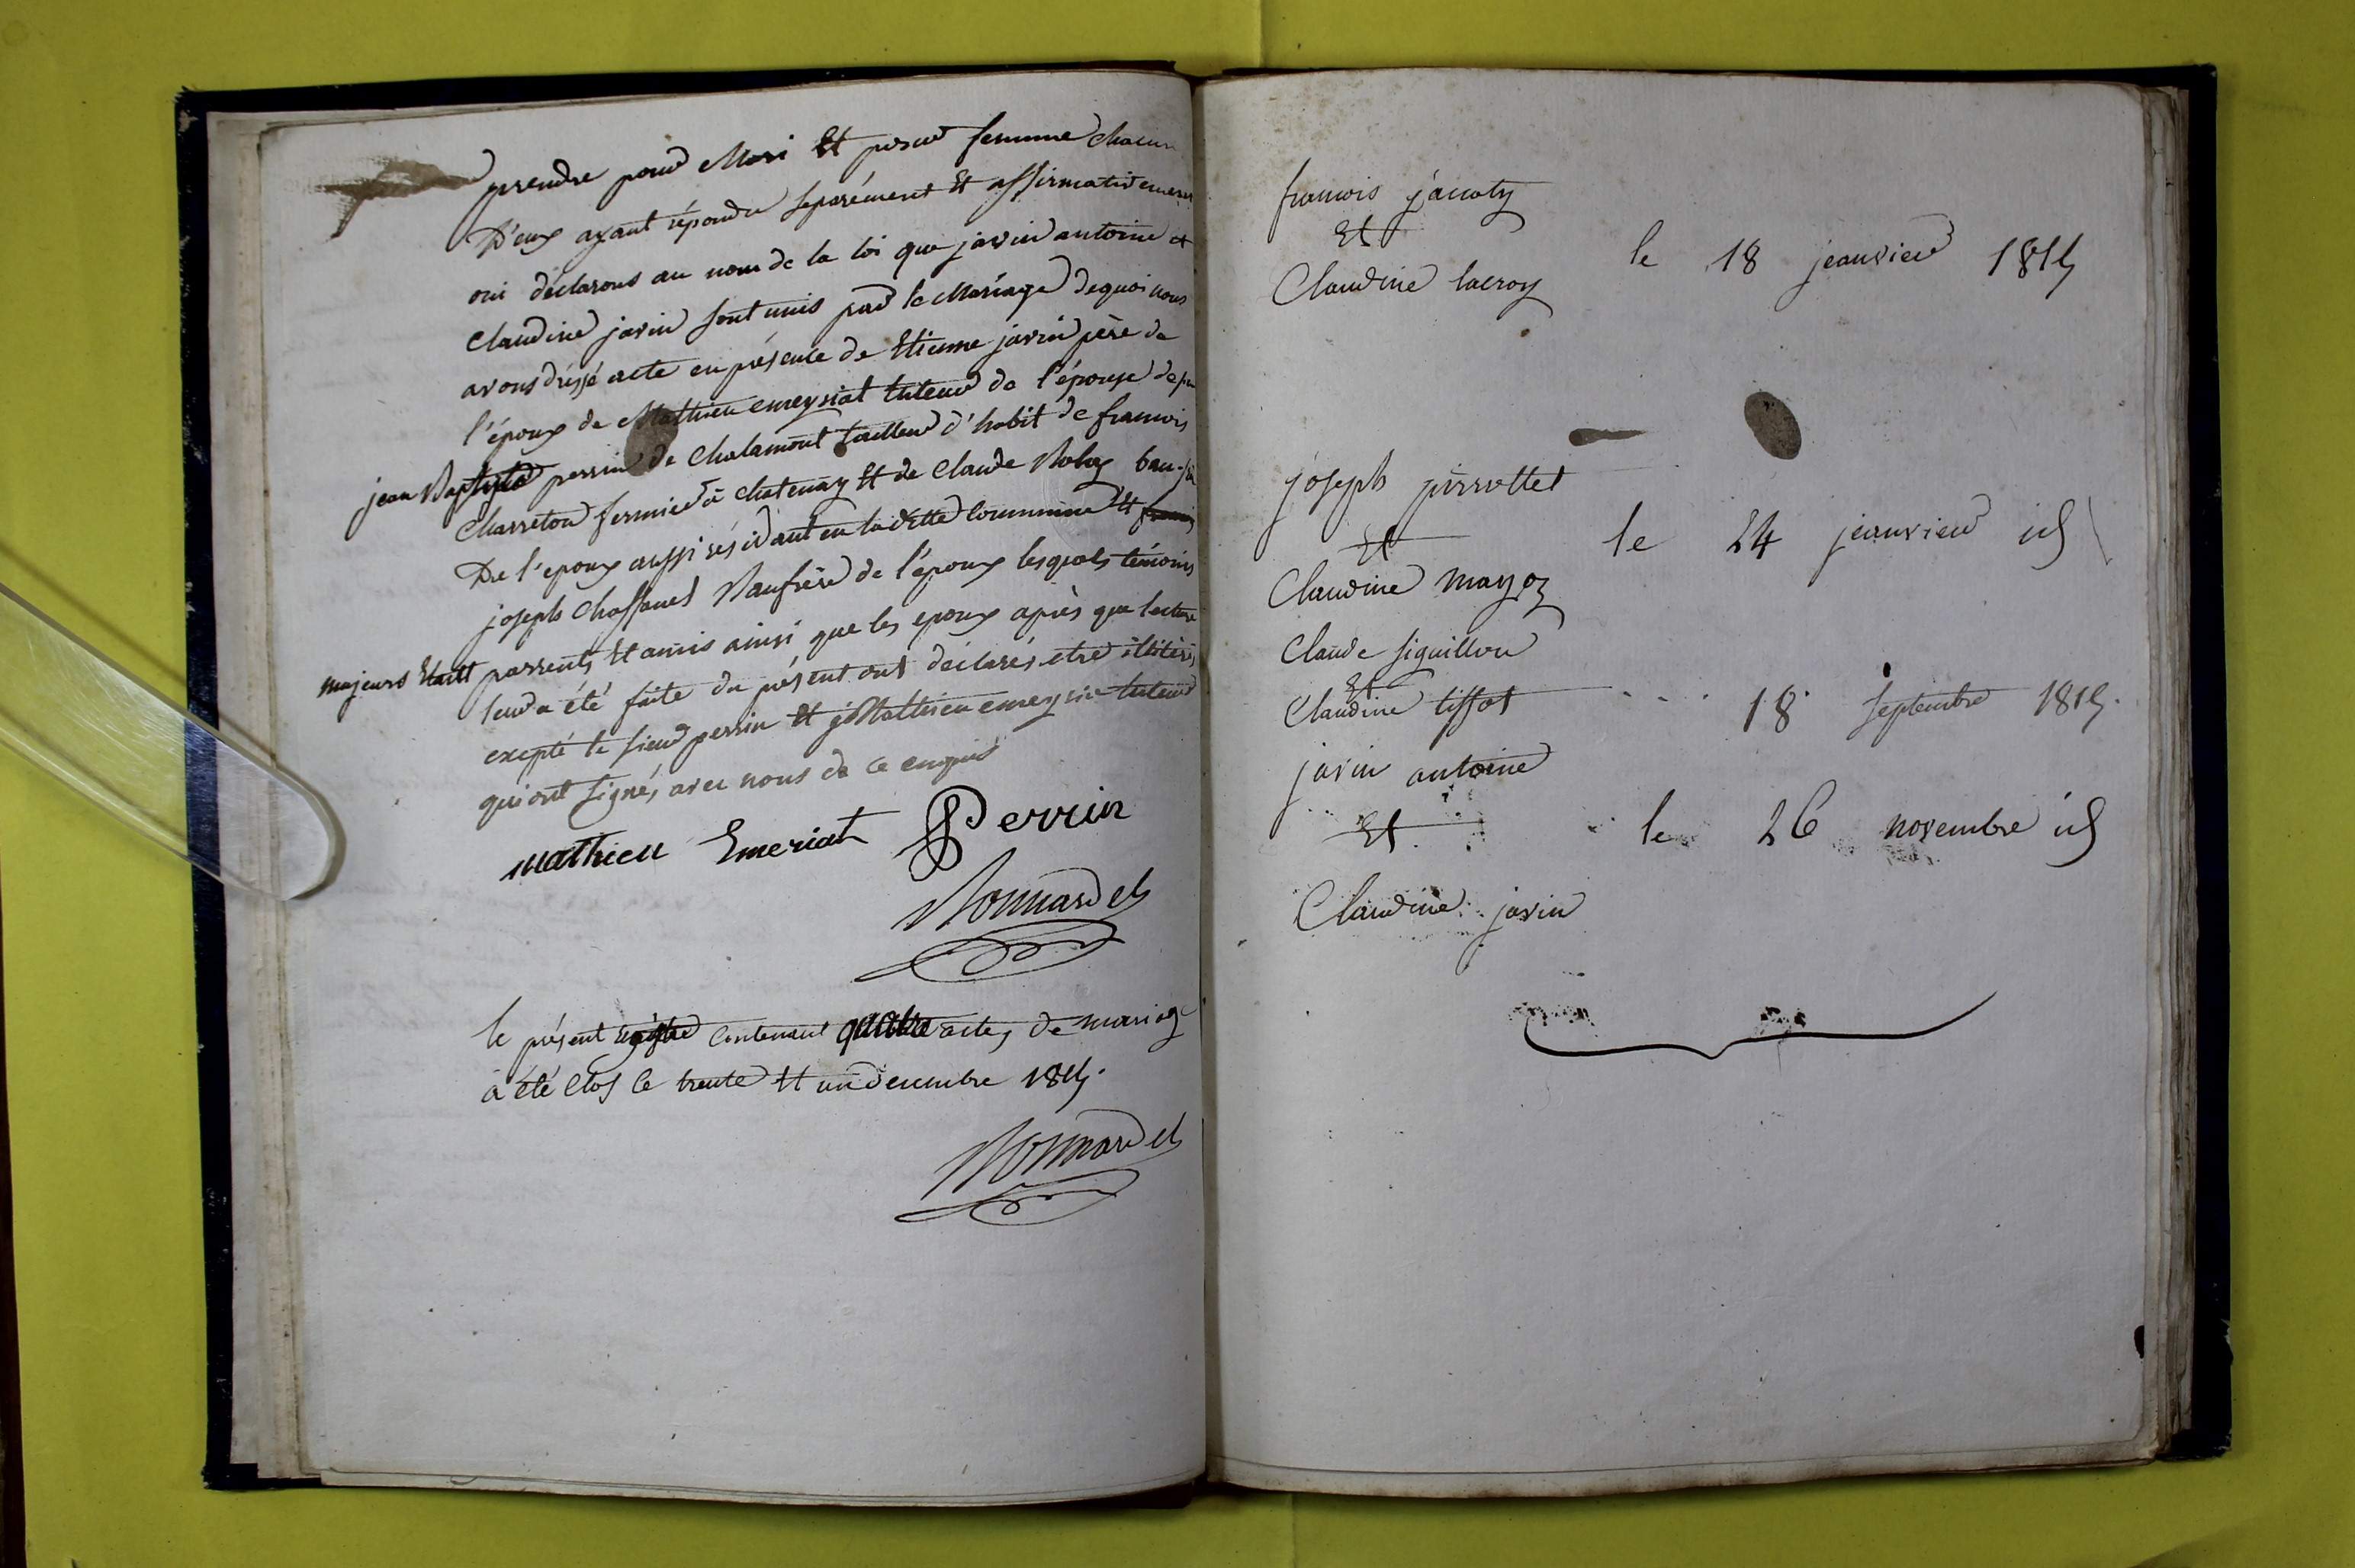 prendre pour Mari Et pour femme chacun
D'eux ayant répondu separément Et affirmativement
oui déclarons au nom de la loi que javin antoine et
Claudine javin sont unis par le Mariage de quoi nous
avons dréssé acte en présence de Etienne javin père de
l'époux de Mathieu emeysiat tuteur de l'épouse de
jean Baptiste perrin de Chalamont tailleur d'habit de francois
Charreton fermier à Chatenay Et de Claude Bolay
De l'epoux aussi résidant en la ditte Commune Et
joseph Chaffanet Baufrère de l'époux lesquels témoins
majeurs parrents Et amis ainsi que les epoux après que lecture
leur a été faite du présent ont déclarés etre illitérés
excepté le sieur perrin Et Mathieu emeysia tuteur
qui ont signés avec nous de ce enquis
mathieu Emeriat Perrin
Bonnardel
le présent registre Contenant quatre actes de mariage
à été Clos le trente Et un decembre 1815.
Bonnardel
francois jacoty
Et
Claudine lacroy le 18 jeanvier 1815
joseph pirrottet
Et le 24 jeanvier id
Claudine mayoz
Claude siguillon
Et
Claudine tissot 18 septembre 1815.
javin antoine
Et le 26 novembre id
Claudine javin